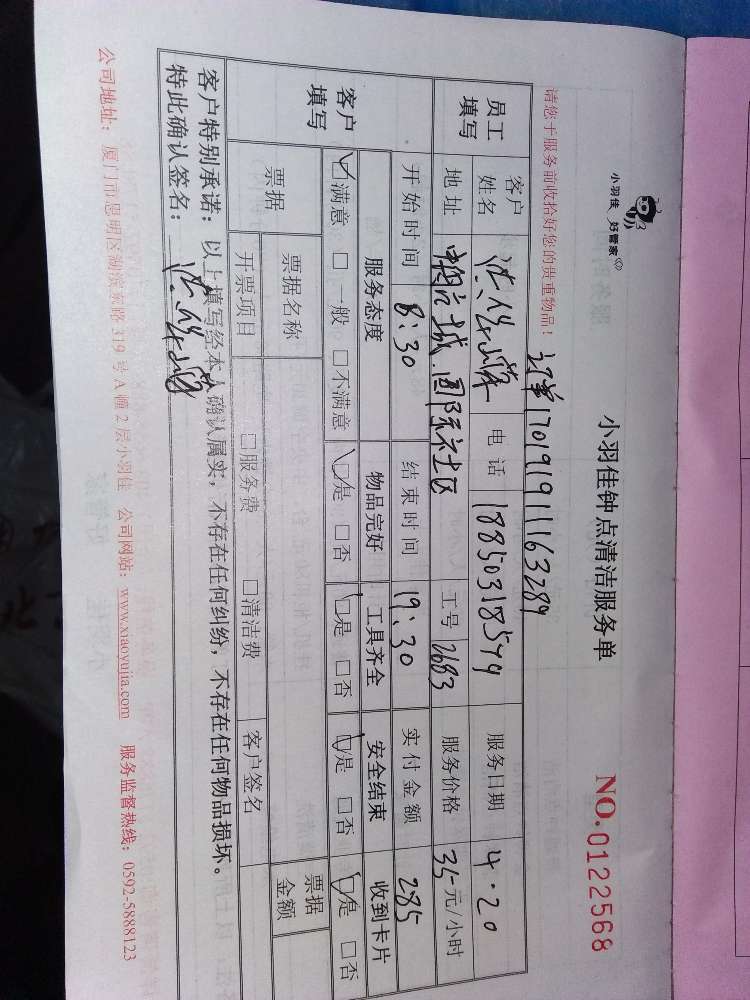 小羽佳 好管家
小羽佳钟点清洁服务单
NO. 0122568
请您于服务前收拾好您的贵重物品！
订单17019191163289
员工填写
客户姓名 电话 18850318599 服务日期 4.20
地址 国际社区 工号 2683 服务价格 35元/小时
开始时间 8:30 结束时间 19:30 实付金额 285
客户填写
服务态度 物品完好 工具齐全 安全结束 收到卡片
☑满意 □一般 □不满意 ☑是 □否 ☑是 □否 ☑是 □否 ☑是 □否
票据 票据名称 票据金额
开票项目 □服务费 □清洁费 客户签名
客户特别承诺：以上填写经本人确认属实，不存在任何纠纷，不存在任何物品损坏。
特此确认签名：
公司地址：厦门市思明区湖滨东路319号A幢2层小羽佳 公司网站：www.xiaoyujia.com 服务监督热线：0592-5888123